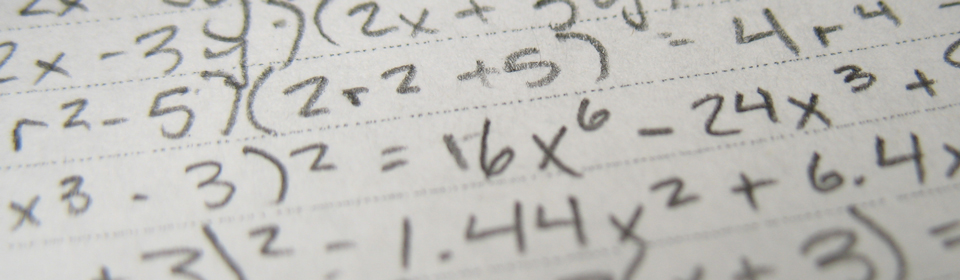 2x - 3y)(2x + 3y)
r² - 5)(2r² + 5) = 4r⁴ -
x³ - 3)² = 16x⁶ - 24x³ +
+ 3)² = 1.44x² + 6.4x
x + 3) =